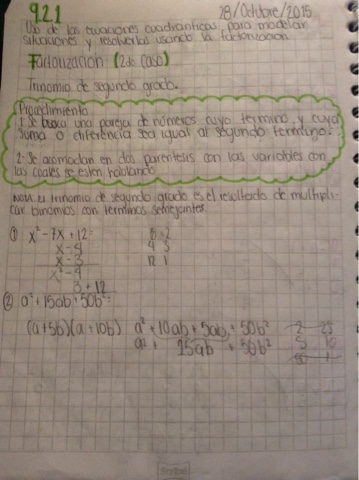 9.2.1 28/Octubre/2015
Uso de las ecuaciones cuadráticas para modelar
situaciones y resolverlas usando la factorización
Factorización (2do caso)
Trinomio de segundo grado.
Procedimiento
1. Se busca una pareja de números cuyo termino, y cuya
suma o diferencia sea igual al segundo termino.
2- Se acomodan en dos parentesis con las variables con
las cuales se esten hablando
Nota: El trinomio de segundo grado es el resultado de multipli-
car binomios con terminos semejantes.
① x² - 7x + 12 = 6 2
x - 4 4 3
x - 3 12 1
x² - 4
3 + 12
② a² + 15ab + 50b² =
(a+5b)(a+10b) a² + 10ab + 5ab + 50b² 2 25
a² + 15ab + 50b² 5 10
50 1
Scribe